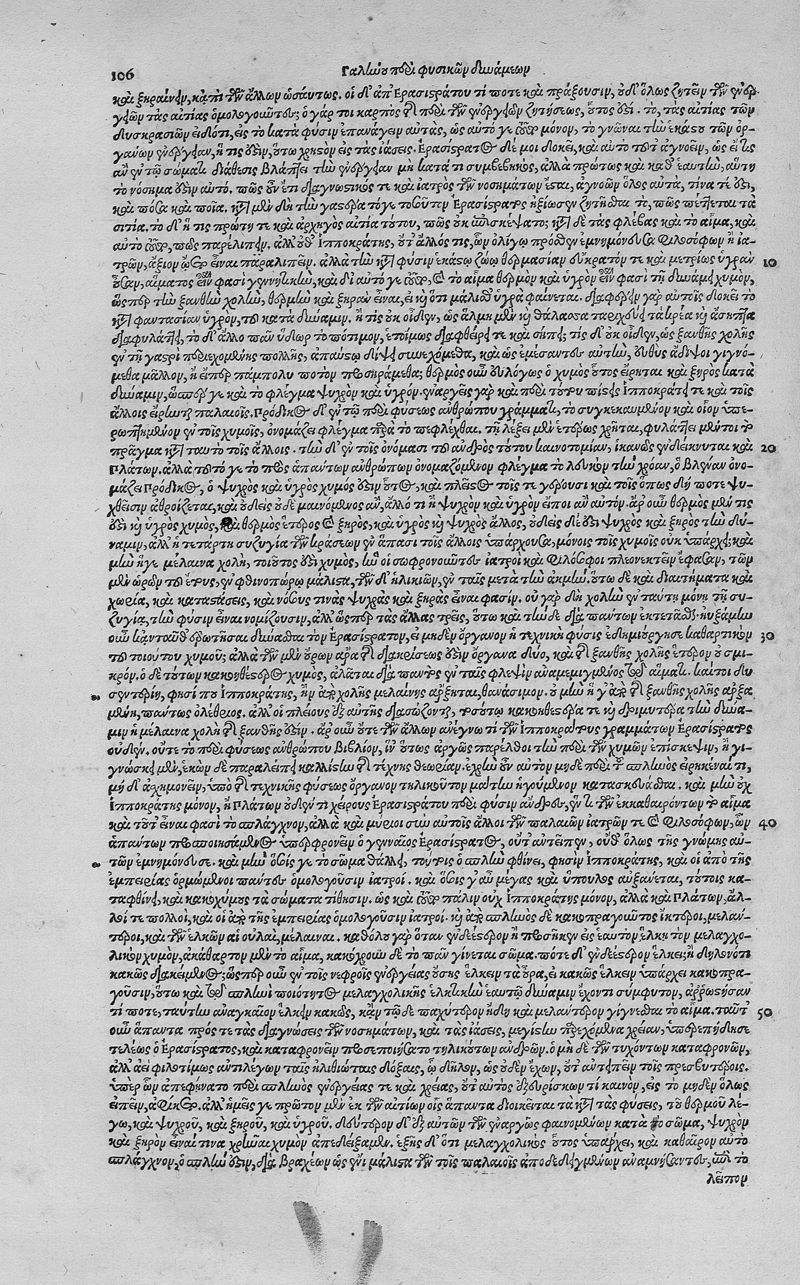 106 Γαληνοῦ περὶ φυσικῶν δυνάμεων
καὶ ξηραίνειν, κἀπὶ τῶν ἄλλων ὡσαύτως. οἱ δ' ἀπ' Ἐρασιστράτου τί ποτε καὶ πράξουσιν, οὐδ' ὅλως ζητεῖν τῶν ἐνερ-
γειῶν τὰς αἰτίας ὁμολογοῦντες; ὁ γάρ τοι καρπὸς τῆς περὶ τῶν ἐνεργειῶν ζητήσεως, οὗτός ἐστι. τὸ, τὰς αἰτίας τῶν
δυσκρασιῶν εἰδότι, εἰς τὸ κατὰ φύσιν ἐπανάγειν αὐτὰς, ὡς αὐτό γε τοῦτο μόνον, τὸ γνῶναι τὴν ἑκάστου τῶν ὀρ-
γάνων ἐνέργειαν, ἥ τις ἐστὶν, οὔπω χρηστὸν εἰς τὰς ἰάσεις. Ἐρασίστρατος δέ μοι δοκεῖ, καὶ αὐτὸ τοῦτ' ἀγνοεῖν, ὡς εἴ τις
ἂν ἐν τῷ σώματι διάθεσις βλάπτει τὴν ἐνέργειαν μὴ κατά τι συμβεβηκὸς, ἀλλὰ πρώτως καὶ καθ' ἑαυτὴν, αὕτη
τὸ νόσημά ἐστιν αὐτό. πῶς οὖν ἔτι διαγνωστικός τε καὶ ἰατρὸς τῶν νοσημάτων ἔσται, ἀγνοῶν ὅλως αὐτὰ, τίνα τε ἐστὶ,
καὶ πόσα καὶ ποῖα. κατὰ μὲν δὴ τὴν γαστέρα τό γε τοσοῦτον Ἐρασίστρατος ἠξίωσεν ζητεῖσθαι τὸ, πῶς πέττεται τὰ
σιτία. τὸ δ' ἥ τις πρώτη τε καὶ ἀρχηγὸς αἰτία τούτου, πῶς οὐκ ἐπεσκέψατο; κατὰ δὲ τὰς φλέβας καὶ τὸ αἷμα, καὶ
αὐτὸ τοῦτο, πῶς παρέλιπεν. ἀλλ' οὔθ' Ἱπποκράτης, οὔτ' ἄλλός τις, ὧν ὀλίγῳ πρόσθεν ἐμνημόνευσα φιλοσόφων ἢ ἰα-
τρῶν, ἄξιον ᾤετο εἶναι παραλιπεῖν. ἀλλὰ τὴν κατὰ φύσιν ἑκάστῳ ζῴῳ θερμασίαν εὔκρατόν τε καὶ μετρίως ὑγρὰν 10
οὖσαν, αἵματος εἶναί φασι γεννητικὴν, καὶ δι' αὐτό γε τοῦτο, καὶ τὸ αἷμα θερμὸν καὶ ὑγρὸν εἶναί φασι τῇ δυνάμει χυμὸν,
ὥσπερ τὴν ξανθὴν χολὴν, θερμὴν καὶ ξηρὰν εἶναι, εἰ καὶ ὅτι μάλισθ' ὑγρὰ φαίνεται. διαφέρειν γὰρ αὐτοῖς δοκεῖ τὸ
κατὰ φαντασίαν ὑγρὸν, τοῦ κατὰ δύναμιν. ἢ τίς οὐκ οἶδεν, ὡς ἅλμη μὲν καὶ θάλασσα ταριχεύει τὰ κρέα καὶ ἄσηπτα
διαφυλάττει, τὸ δ' ἄλλο πᾶν ὕδωρ τὸ πότιμον, ἑτοίμως διαφθείρει τε καὶ σήπει; τίς δ' οὐκ οἶδεν, ὡς ξανθῆς χολῆς
ἐν τῇ γαστρὶ περιεχομένης πολλῆς, ἀπαύστῳ δίψει συνεχόμεθα, καὶ ὡς ἐμέσαντες αὐτὴν, εὐθὺς ἄδιψοι γιγνό-
μεθα μᾶλλον, ἢ εἴπερ πάμπολυ ποτὸν προσηράμεθα; θερμὸς οὖν εὐλόγως ὁ χυμὸς οὗτος εἴρηται καὶ ξηρὸς κατὰ
δύναμιν, ὥσπερ γε καὶ τὸ φλέγμα ψυχρὸν καὶ ὑγρόν. ἐναργεῖς γὰρ καὶ περὶ τούτου πίστεις Ἱπποκράτει τε καὶ τοῖς
ἄλλοις εἴρηνται παλαιοῖς. Πρόδικος δ' ἐν τῷ περὶ φύσεως ἀνθρώπου γράμματι, τὸ συγκεκαυμένον καὶ οἷον ὑπε-
ρωπτημένον ἐν τοῖς χυμοῖς, ὀνομάζει φλέγμα παρὰ τὸ πεφλέχθαι. τῇ λέξει μὲν ἑτέρως χρῆται, φυλάττει μέντοι τὸ
πρᾶγμα κατὰ ταὐτὸ τοῖς ἄλλοις. τὴν δ' ἐν τοῖς ὀνόμασι τοῦ ἀνδρὸς τούτου καινοτομίαν, ἱκανῶς ἐνδείκνυται καὶ 20
Πλάτων. ἀλλὰ τοῦτό γε τὸ πρὸς ἁπάντων ἀνθρώπων ὀνομαζόμενον φλέγμα τὸ λευκὸν τὴν χρόαν, ὃ βλένναν ὀνο-
μάζει Πρόδικος, ὁ ψυχρὸς καὶ ὑγρὸς χυμός ἐστιν οὗτος, καὶ πλεῖστος τοῖς τε γέρουσι καὶ τοῖς ὅπως δή ποτε ψυ-
χθεῖσιν ἀθροίζεται, καὶ οὐδεὶς οὐδὲ μαινόμενος ἂν, ἄλλό τι ἢ ψυχρὸν καὶ ὑγρὸν εἴποι ἂν αὐτόν. ἆρ' οὖν θερμὸς μέν τις
ἐστὶ καὶ ὑγρὸς χυμὸς, καὶ θερμὸς ἕτερος καὶ ξηρὸς, καὶ ὑγρὸς καὶ ψυχρὸς ἄλλος, οὐδεὶς δέ ἐστι ψυχρὸς καὶ ξηρὸς τὴν δύ-
ναμιν, ἀλλ' ἡ τετάρτη συζυγία τῶν κράσεων ἐν ἅπασι τοῖς ἄλλοις ὑπάρχουσα, μόνοις τοῖς χυμοῖς οὐχ ὑπάρχει; καὶ
μὴν ἥ γε μέλαινα χολὴ, τοιοῦτός ἐστι χυμὸς, ἣν οἱ σωφρονοῦντες ἰατροὶ καὶ φιλόσοφοι πλεονεκτεῖν ἔφασαν, τῶν
μὲν ὡρῶν τοῦ ἔτους, ἐν φθινοπώρῳ μάλιστα, τῶν δ' ἡλικιῶν, ἐν ταῖς μετὰ τὴν ἀκμήν. οὕτω δὲ καὶ διαιτήματα καὶ
χωρία, καὶ καταστάσεις, καὶ νόσους τινὰς ψυχρὰς καὶ ξηρὰς εἶναί φασιν. οὐ γὰρ δὴ χωλὴν ἐν ταύτῃ μόνῃ τῇ συ-
ζυγίᾳ, τὴν φύσιν εἶναι νομίζουσιν, ἀλλ' ὥσπερ τὰς ἄλλας τρεῖς, οὕτω καὶ τήνδε διὰ πάντων ἐκτετάσθαι. ηὐξάμην
οὖν κἀνταῦθ' ἐρωτῆσαι δύνασθαι τὸν Ἐρασίστρατον, εἰ μηδὲν ὄργανον ἡ τεχνικὴ φύσις ἐδημιούργησε καθαρτικὸν 30
τοῦ τοιούτου χυμοῦ; ἀλλὰ τῶν μὲν οὔρων ἄρα τῆς διακρίσεώς ἐστιν ὄργανα δύο, καὶ τῆς ξανθῆς χολῆς ἕτερον οὐ σμι-
κρόν. ὁ δὲ τούτων κακοηθέστερος χυμὸς, ἀλᾶται διὰ παντὸς ἐν ταῖς φλεψὶν ἀναμεμιγμένος τῷ αἵματι. καίτοι δυ-
σεντερίη, φησί που Ἱπποκράτης, ἢν ἀπὸ χολῆς μελαίνης ἄρξηται, θανάσιμον. οὐ μὴν ἥ γ' ἀπὸ τῆς ξανθῆς χολῆς ἀρξα-
μένη, πάντως ὀλέθριος. ἀλλ' οἱ πλείους ἐξ αὐτῆς διασώζονται, τοσούτῳ κακοηθεστέρα τε καὶ δριμυτέρα τὴν δύνα-
μιν ἡ μέλαινα χολὴ τῆς ξανθῆς ἐστιν. ἆρ' οὖν οὔτε τῶν ἄλλων ἀνέγνω τι τῶν Ἱπποκράτους γραμμάτων Ἐρασίστρατος
οὐδέν. οὔτε τὸ περὶ φύσεως ἀνθρώπου βιβλίον, ἵν' οὕτως ἀργῶς παρέλθοι τὴν περὶ τῶν χυμῶν ἐπίσκεψιν, ἢ γι-
γνώσκει μὲν, ἑκὼν δὲ παραλείπει καλλίστην τῆς τέχνης θεωρίαν. ἐχρῆν οὖν αὐτὸν μηδὲ περὶ τοῦ σπληνὸς εἰρηκέναι τι,
μή δ' ἀσχημονεῖν, ὑπὸ τῆς τεχνικῆς φύσεως ὄργανον τηλικοῦτον μάτην ἡγούμενον κατασκευάσθαι. καὶ μὴν οὐχ
Ἱπποκράτης μόνον, ἢ Πλάτων οὐδέν τι χείρους Ἐρασιστράτου περὶ φύσιν ἄνδρες, ἕν τι τῶν ἐκκαθαιρόντων τὸ αἷμα
καὶ τοῦτ' εἶναί φασι τὸ σπλάγχνον, ἀλλὰ καὶ μύριοι σὺν αὐτοῖς ἄλλοι τῶν παλαιῶν ἰατρῶν τε καὶ φιλοσόφων, ὧν 40
ἁπάντων προσποιησάμενος ὑπερφρονεῖν ὁ γενναῖος Ἐρασίστρατος, οὔτ' ἀντεῖπεν, οὔθ' ὅλως τῆς γνώμης αὐ-
τῶν ἐμνημόνευσε. καὶ μὴν ὅσοις γε τὸ σῶμα θάλλει, τούτοις ὁ σπλὴν φθίνει, φησὶν Ἱπποκράτης, καὶ οἱ ἀπὸ τῆς
ἐμπειρίας ὁρμώμενοι πάντες ὁμολογοῦσιν ἰατροί. καὶ ὅσοις γ' αὖ μέγας καὶ ὕπουλος αὐξάνεται, τούτοις κα-
ταφθίνει, καὶ κακόχυμος τὰ σώματα τίθησιν. ὡς καὶ τοῦτο πάλιν οὐχ Ἱπποκράτης μόνον, ἀλλὰ καὶ Πλάτων, ἄλ-
λοι τε πολλοὶ, καὶ οἱ ἀπὸ τῆς ἐμπειρίας ὁμολογοῦσιν ἰατροί. καὶ ἀπὸ σπληνὸς δὲ κακοπραγοῦντος ἴκτεροι, μελάν-
τεροι, καὶ τῶν ἑλκῶν αἱ οὐλαὶ, μέλαιναι. καθόλου γὰρ ὅταν ἐνδεέστερον ἢ προσῆκεν εἰς ἑαυτὸν ἕλκῃ τὸν μελαγχο-
λικὸν χυμὸν, ἀκάθαρτον μὲν τὸ αἷμα, κακόχρουν δὲ τὸ πᾶν γίνεται σῶμα. πότε δ' ἐνδεέστερον ἕλκει; ἢ δηλονότι
κακῶς διακείμενος; ὥσπερ οὖν ἐν τοῖς νεφροῖς ἐνεργείας οὔσης ἕλκειν τὰ οὖρα, εἰ κακῶς ἕλκειν ὑπάρχει κακοπρα-
γοῦσιν, οὕτω καὶ τῷ σπληνὶ ποιότητος μελαγχολικῆς ἑλκτικὴν ἑαυτῷ δύναμιν ἔχοντι σύμφυτον, ἀρρωστήσαν-
τί ποτε, ταύτην ἀναγκαῖον ἕλκειν κακῶς, κἂν τῷδε παχύτερον ἤδη καὶ μελάντερον γίγνεσθαι τὸ αἷμα. ταῦτ' 50
οὖν ἅπαντα πρός τε τὰς διαγνώσεις τῶν νοσημάτων, καὶ τὰς ἰάσεις, μεγίστην παρεχόμενα χρείαν, ὑπερεπήδησε
τελέως ὁ Ἐρασίστρατος, καὶ καταφρονεῖν προσεποιήσατο τηλικούτων ἀνδρῶν. ὁ μηδὲ τῶν τυχόντων καταφρονῶν,
ἀλλ' ἀεὶ φιλοτίμως ἀντιλέγων ταῖς ἠλιθιώταις δόξαις, ᾧ δῆλον, ὡς οὐδὲν ἔχων, οὔτ' ἀντειπεῖν τοῖς πρεσβυτέροις.
ὑπὲρ ὧν ἀπεφήναντο περὶ σπληνὸς ἐνεργείας τε καὶ χρείας, οὔτ' αὐτὸς ἐξευρίσκων τι καινὸν, εἰς τὸ μηδὲν ὅλως
εἰπεῖν, ἀφίκετο. ἀλλ' ἡμεῖς γε πρῶτον μὲν ἐκ τῶν αἰτίων οἷς ἅπαντα διοικεῖται τὰ κατὰ τὰς φύσεις, τοῦ θερμοῦ λέ-
γω, καὶ ψυχροῦ, καὶ ξηροῦ, καὶ ὑγροῦ. δεύτερον δ' ἐξ αὐτῶν τῶν ἐναργῶς φαινομένων κατὰ τὸ σῶμα, ψυχρὸν
καὶ ξηρὸν εἶναί τινα χρῆναι χυμὸν ἀπεδείξαμεν. ἑξῆς δ' ὅτι μελαγχολικὸς οὗτος ὑπάρχει, καὶ καθαῖρον αὐτὸ
σπλάγχνον, ὁ σπλήν ἐστιν, διὰ βραχέων ὡς ἔνι μάλιστα τῶν τοῖς παλαιοῖς ἀποδεδειγμένων ἀναμνήσαντες, ἐπὶ τὸ
λεῖπον